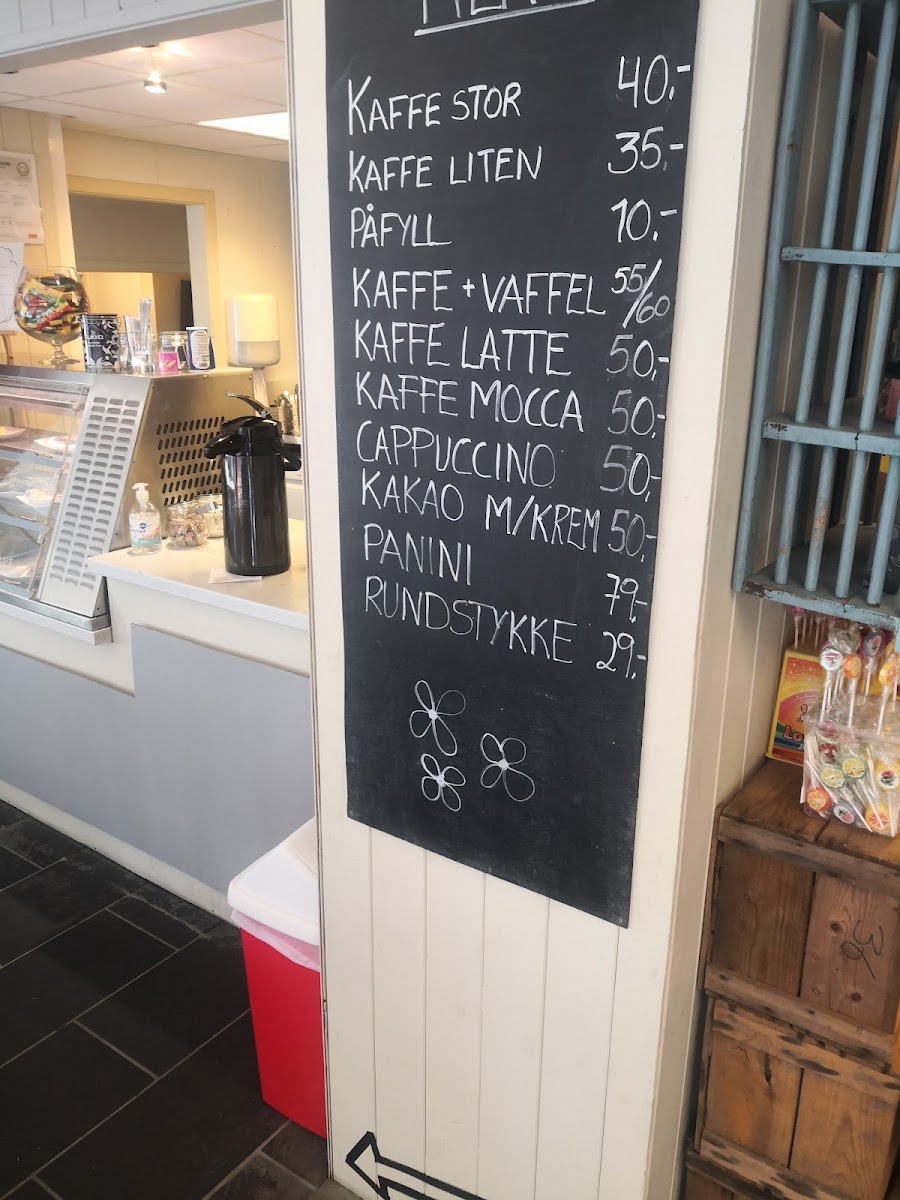 KAFFE STOR 40,-
KAFFE LITEN 35,-
PÅFYLL 10,-
KAFFE + VAFFEL 55/60
KAFFE LATTE 50,-
KAFFE MOCCA 50,-
CAPPUCCINO 50,-
KAKAO M/KREM 50,-
PANINI 79,-
RUNDSTYKKE 29,-